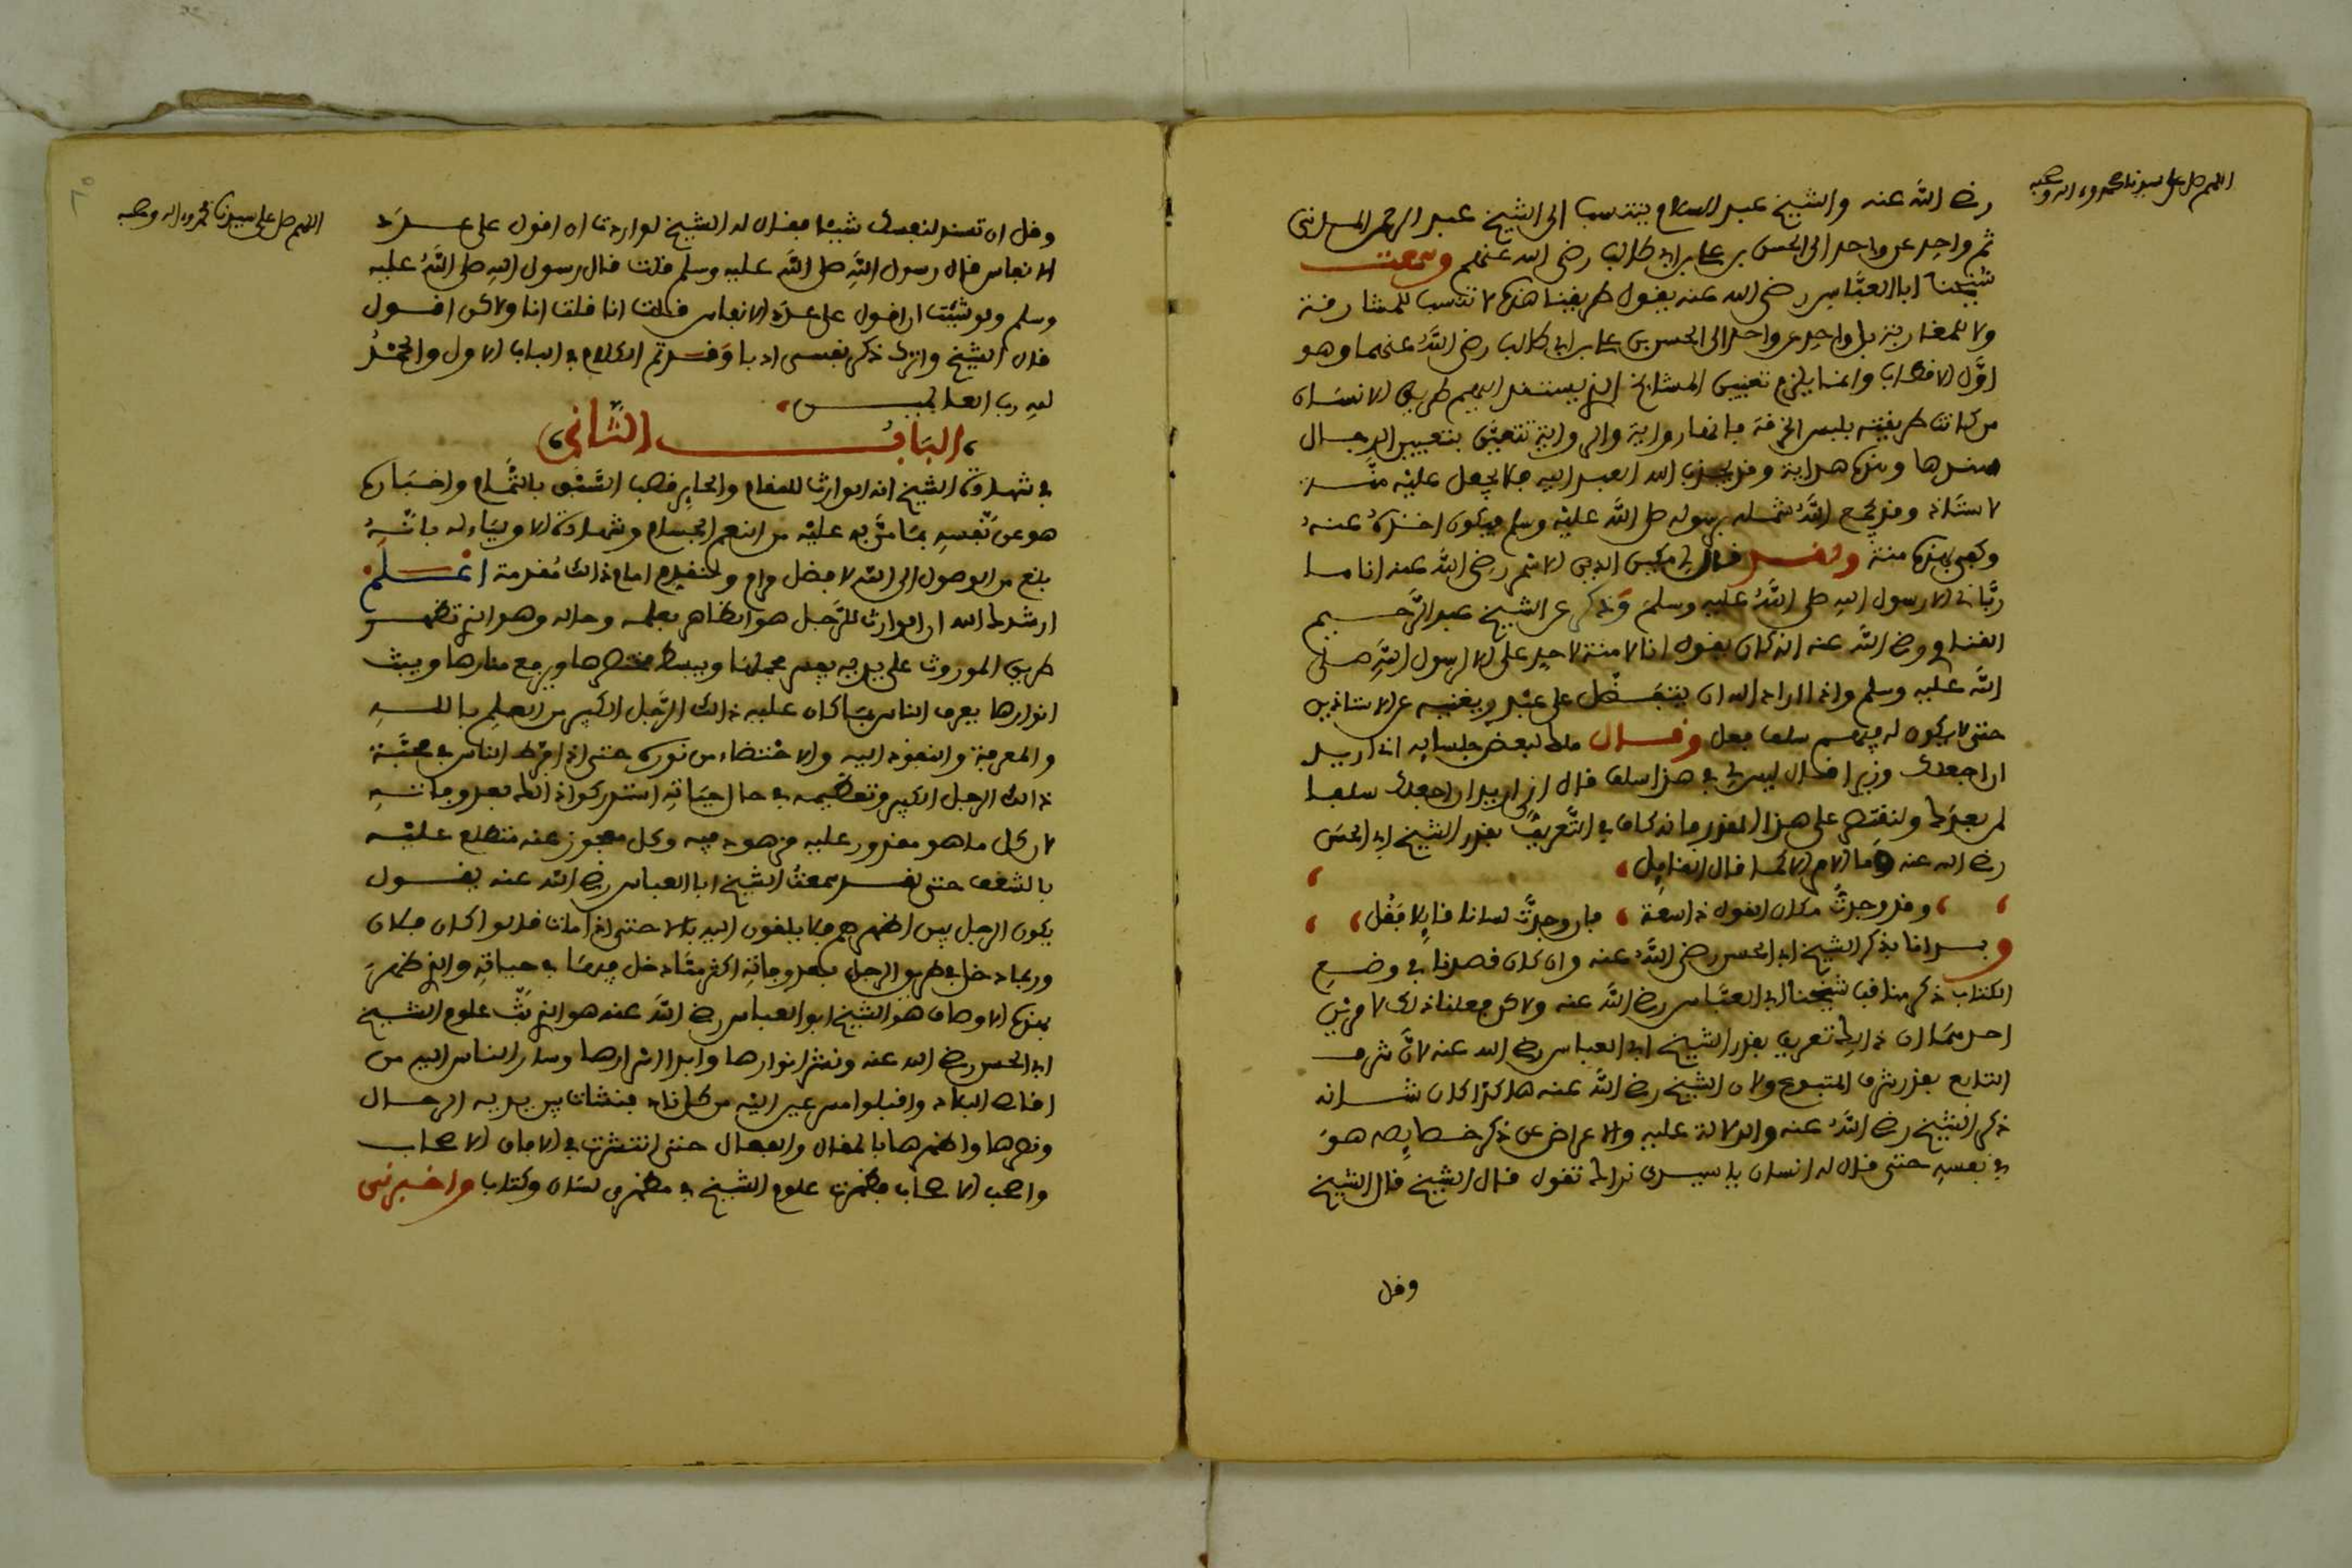 اللهم صل على سيدنا محمد وءاله وصحبه
رضى الله عنه والشيخ عبد السلام ينتسب الى الشيخ عبد الرحمن المدنى
ثم واحد عن واحد الى الحسن بن على بن ابى طالب رضى الله عنهم وسمعت
شيخنا ابا العباس رضى الله عنه يقول طريقنا هذه لا تنسب للمشارقة
ولا للمغاربة بل واحد عن واحد الى الحسن بن على بن ابى طالب رضى الله عنهما وهو
اول الاقطاب وانما يلزم تعيين المشايخ الذى يستند اليهم طريق الانسان
من كانت طريقته بلبس الخرقة فانها رواية والرواية تتعين بتعيين الرجال
سندها وهذه هداية وقد يجذب الله العبد اليه فلا يجعل عليه منة
لاستاذ وقد يجمع الله شمله برسوله صلى الله عليه وسلم فيكون اخذه عنه
وكفى بهذه منة ولقد قال لى مكين الدين الاسمر رضى الله عنه انا ما
ربانى الا رسول الله صلى الله عليه وسلم وذكر عن الشيخ عبد الرحيم
القناوى رضى الله عنه انه كان يقول انا لا منة لاحد على الا رسول الله صلى
الله عليه وسلم واذا اراد الله ان يتفضل على عبد ويغنيه عن الاستاذين
حتى لا يكون له فيهم سلف فعل وقال ملك لبعض جلسايه انى اريد
ان اجعلك وزيرا فقال ليس لى فى هذا سلف قال انى اريد ان اجعلك سلفا
لمن بعدك ولنقتصر على هذا القدر فانه كاف فى التعريف بقدر الشيخ ابى الحسن
رضى الله عنه وما الامر الا كما قال القايل
وقد وجدت مكان القول ذا سعة فان وجدت لسانا قايلا فقل
وبدانا بذكر الشيخ ابى الحسن رضى الله عنه وان كان قصدنا فى وضع
الكتاب ذكر مناقب شيخنا ابى العباس رضى الله عنه ولاكن فعلنا ذلك لامرين
احدهما ان ذلك تعريف بقدر الشيخ ابى العباس رضى الله عنه لان شرف
التابع بقدر شرف المتبوع ولان الشيخ رضى الله عنه هاكذا كان شانه
ذكر الشيخ رضى الله عنه والدلالة عليه والاعراض عن ذكر خصايصه هو
فى نفسه حتى قال له انسان يا سيدى نراك تقول قال الشيخ قال الشيخ
وقل
اللهم صل على سيدنا محمد وءاله وصحبه
وقل ان تسند لنفسك شيئا فقال له الشيخ لو اردت ان اقول على عدد
الانفاس قال رسول الله صلى الله عليه وسلم قلت قال رسول الله صلى الله عليه
وسلم ولو شئت ان اقول على عدد الانفاس قلت انا قلت انا ولاكن اقول
قال الشيخ واترك ذكر نفسى ادبا وقد تم الكلام فى الباب الاول والحمد
لله رب العالمين
الباب الثانى
فى شهادة الشيخ انه الوارث للمقام والحايز قصب السبق بالتمام واخباره
هو عن نفسه بما من به عليه من النعم الجسام وشهادة الاولياء له بانه
بلغ من الوصول الى الله لافضل مرام ولنقدم امام ذالك مقدمة اعلم
ارشدك الله ان الوارث للرجل هو الظاهر بعلمه وحاله وهو الذى تظهر
طريق الموروث على يديه يفسر مجملها ويبسط مختصرها ويرفع منارها ويبث
انوارها يعرف الناس بما كان عليه ذالك الرجل الكبير من العلم بالله
والمعرفة والنفوذ اليه والاحتضاء من نوره حتى اذا فرط الناس فى محبة
ذالك الرجل الكبير وتعظيمه فى حال حياته استدركوا ذالك بعد وفاته
لان كل ما هو مقدور عليه مزهود فيه وكل معجوز عنه متطلع عليه
بالشغف حتى لقد سمعت الشيخ ابا العباس رضى الله عنه يقول
يكون الرجل بين اظهرهم فلا يلقون اليه بالا حتى اذا مات قالوا كان فلان
وربما دخل فى طريق الرجل بعد وفاته اكثر مما دخل فيها فى حياته والذى ظهر
بهذه الاوصاف هو الشيخ ابو العباس رضى الله عنه هو الذى بث علوم الشيخ
ابى الحسن رضى الله عنه ونشر انوارها وابدا اسرارها وسار الناس اليه من
اقاصى البلاد واقبلوا مسرعين اليه من كل ناد فنشات بين يديه الرجال
ونصرها واظهرها بالمقال والفعال حتى انتشرت فى الافاق الاصحاب
واصحب الاصحاب فظهرت علوم الشيخ فى مظهرى لسان وكتاب واخبرنى